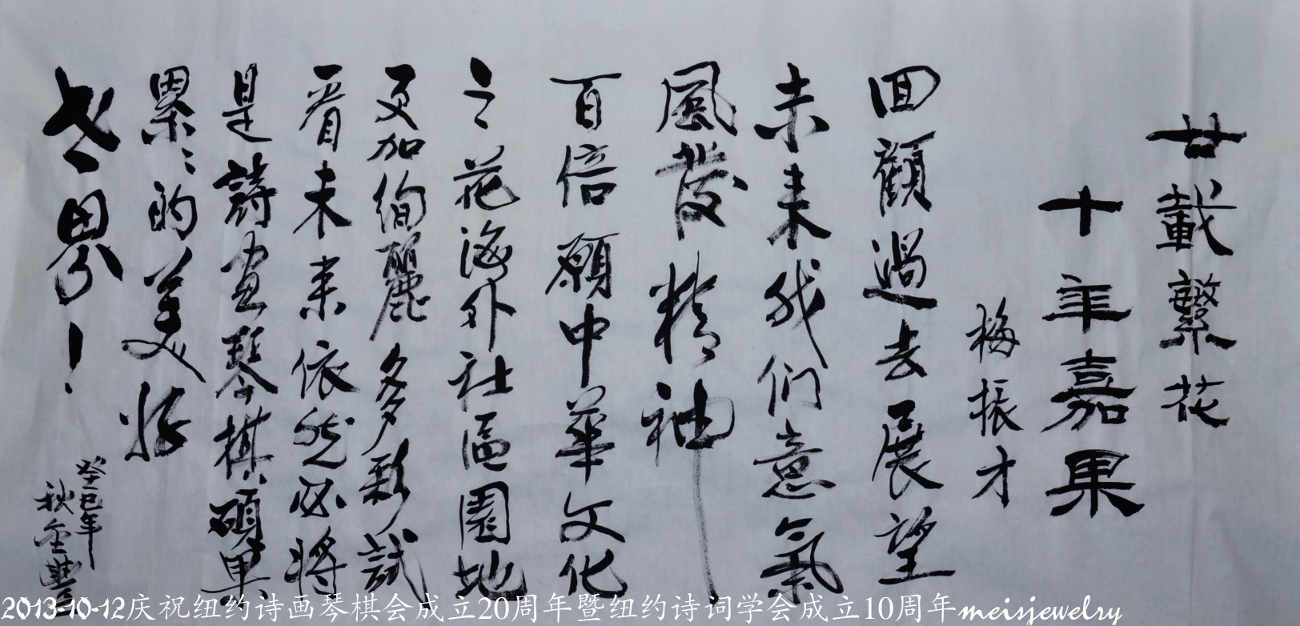 廿載繁花
十年嘉果
梅振才
回顧過去展望
未来我们意氣
風發精神
百倍願中華文化
之花海外社區園地
更加絢麗多彩試
看未来依然必將
是詩畫琴棋碩果
累〻的美好
世界！
癸巳年
秋
2013-10-12庆祝纽约诗画琴棋会成立20周年暨纽约诗词学会成立10周年meisjewelry